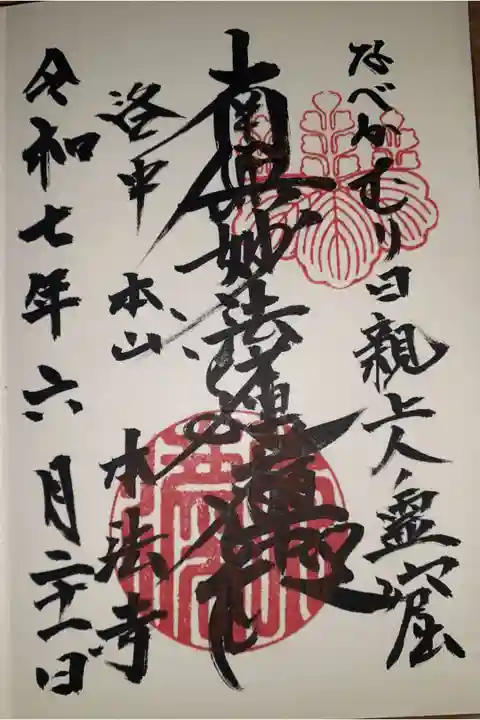 なべかむり日親上人ノ霊窟
南無妙法蓮華経
洛中 本山 本法寺
令和七年六月二十一日